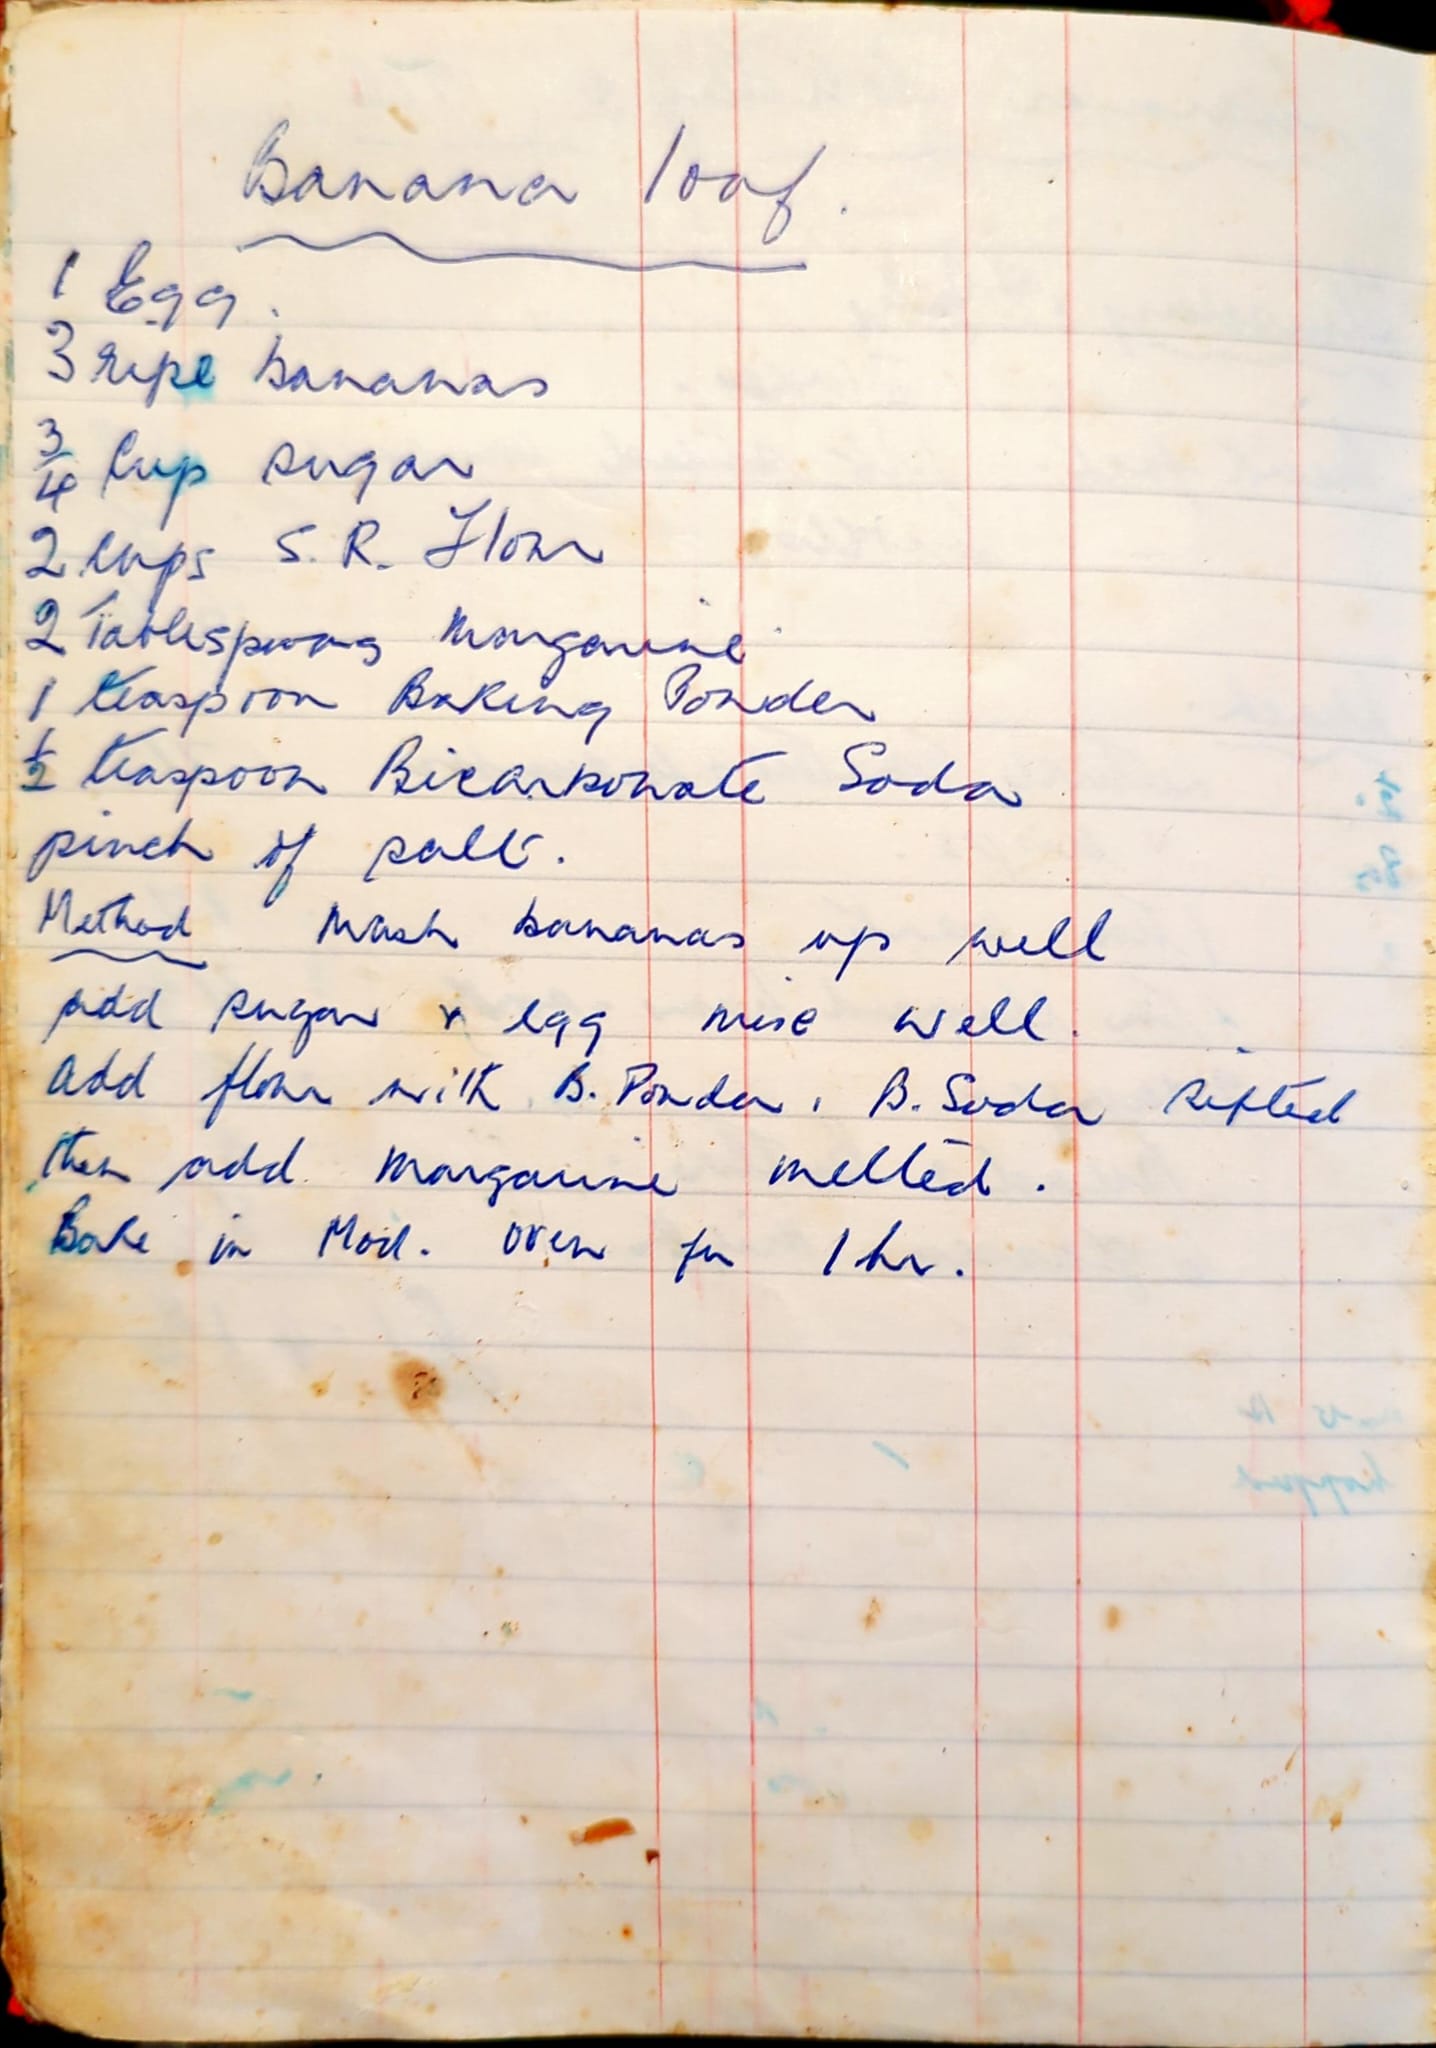 Banana loaf.
1 Egg.
3 ripe bananas
3/4 Cup sugar
2 Cups S. R. Flour
2 Tablespoons Margarine
1 teaspoon Baking Powder
1/2 teaspoon Bicarbonate Soda
pinch of salt.
Method Mash bananas up well
add sugar & egg mix well.
Add flour with B. Powder. B. Soda sifted
then add margarine melted.
Bake in Mod. oven for 1 hr.